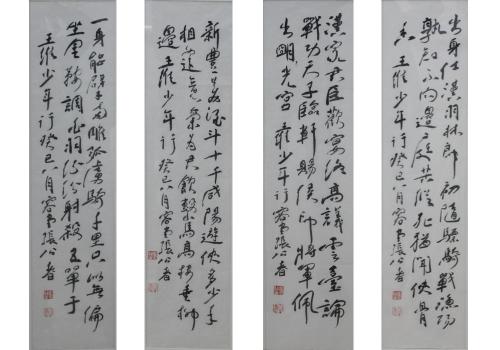 出身仕漢羽林郎初隨驃騎戰漁陽
孰知不向邊庭苦縱死猶聞俠骨
香王維少年行癸巳八月張公者
漢家君臣歡宴終高議雲臺論
戰功天子臨軒賜侯印將軍佩
出明光宮王維少年行張公者
新豐美酒斗十千咸陽遊俠多少年
相逢意氣為君飲繫馬高樓垂柳
邊王維少年行癸巳八月張公者
一身能擘兩雕弧虜騎千里只似無偏
坐金鞍調白羽紛紛射殺五單于
王維少年行癸巳八月張公者